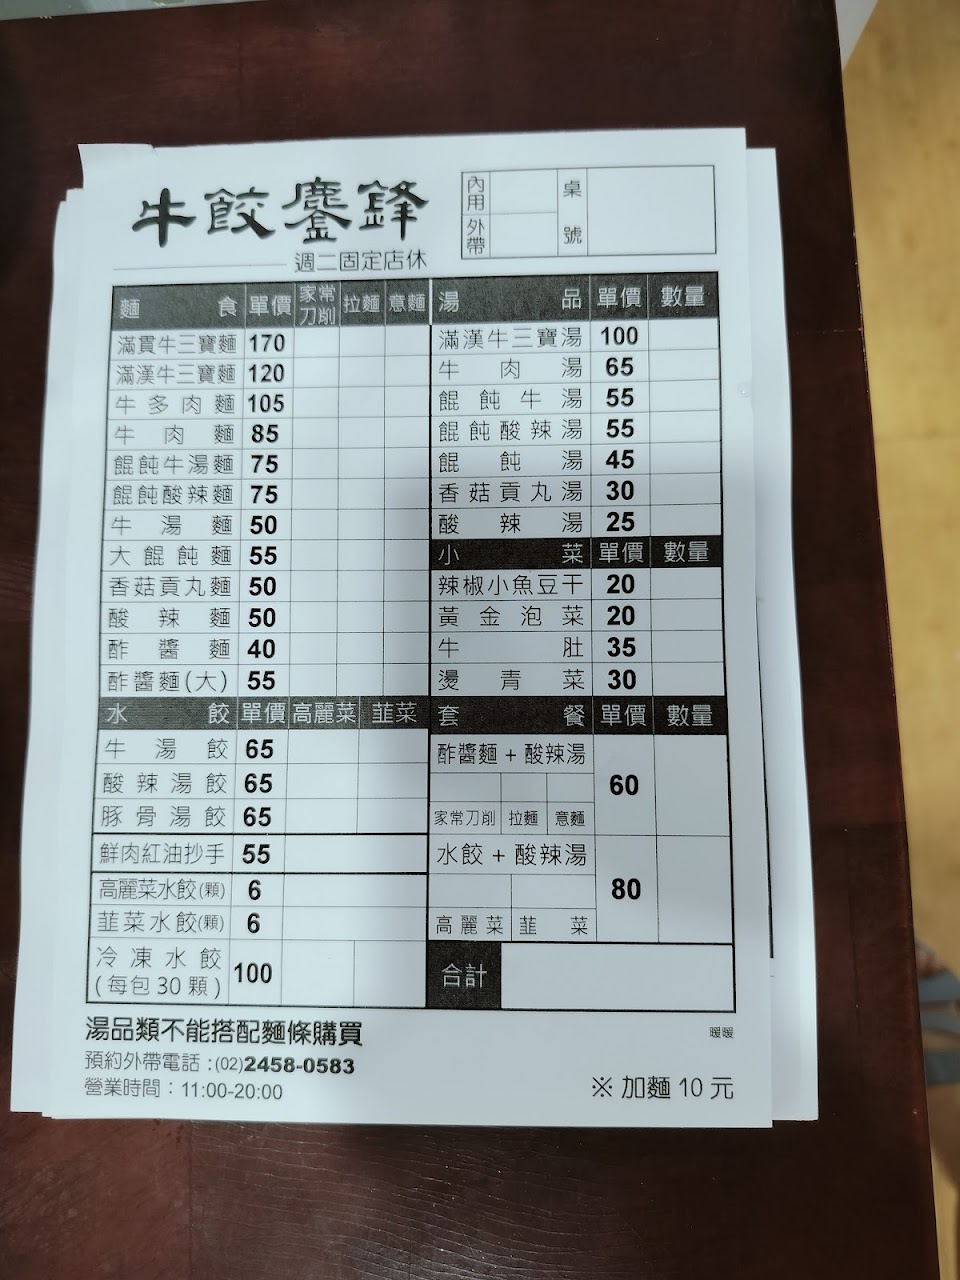 牛餃鏖鋒
週二固定店休
內用
外帶
桌號
麵食 單價 家常刀削 拉麵 意麵
滿貫牛三寶麵 170
滿漢牛三寶麵 120
牛多肉麵 105
牛肉麵 85
餛飩牛湯麵 75
餛飩酸辣麵 75
牛湯麵 50
大餛飩麵 55
香菇貢丸麵 50
酸辣麵 50
酢醬麵 40
酢醬麵(大) 55
水餃 單價 高麗菜 韮菜
牛湯餃 65
酸辣湯餃 65
豚骨湯餃 65
鮮肉紅油抄手 55
高麗菜水餃(顆) 6
韮菜水餃(顆) 6
冷凍水餃
(每包30顆) 100
湯品 單價 數量
滿漢牛三寶湯 100
牛肉湯 65
餛飩牛湯 55
餛飩酸辣湯 55
餛飩湯 45
香菇貢丸湯 30
酸辣湯 25
小菜 單價 數量
辣椒小魚豆干 20
黃金泡菜 20
牛肚 35
燙青菜 30
套餐 單價 數量
酢醬麵+酸辣湯 60
家常刀削 拉麵 意麵
水餃+酸辣湯 80
高麗菜 韮菜
合計
湯品類不能搭配麵條購買
暖暖
預約外帶電話:(02)2458-0583
營業時間:11:00-20:00
※ 加麵 10 元